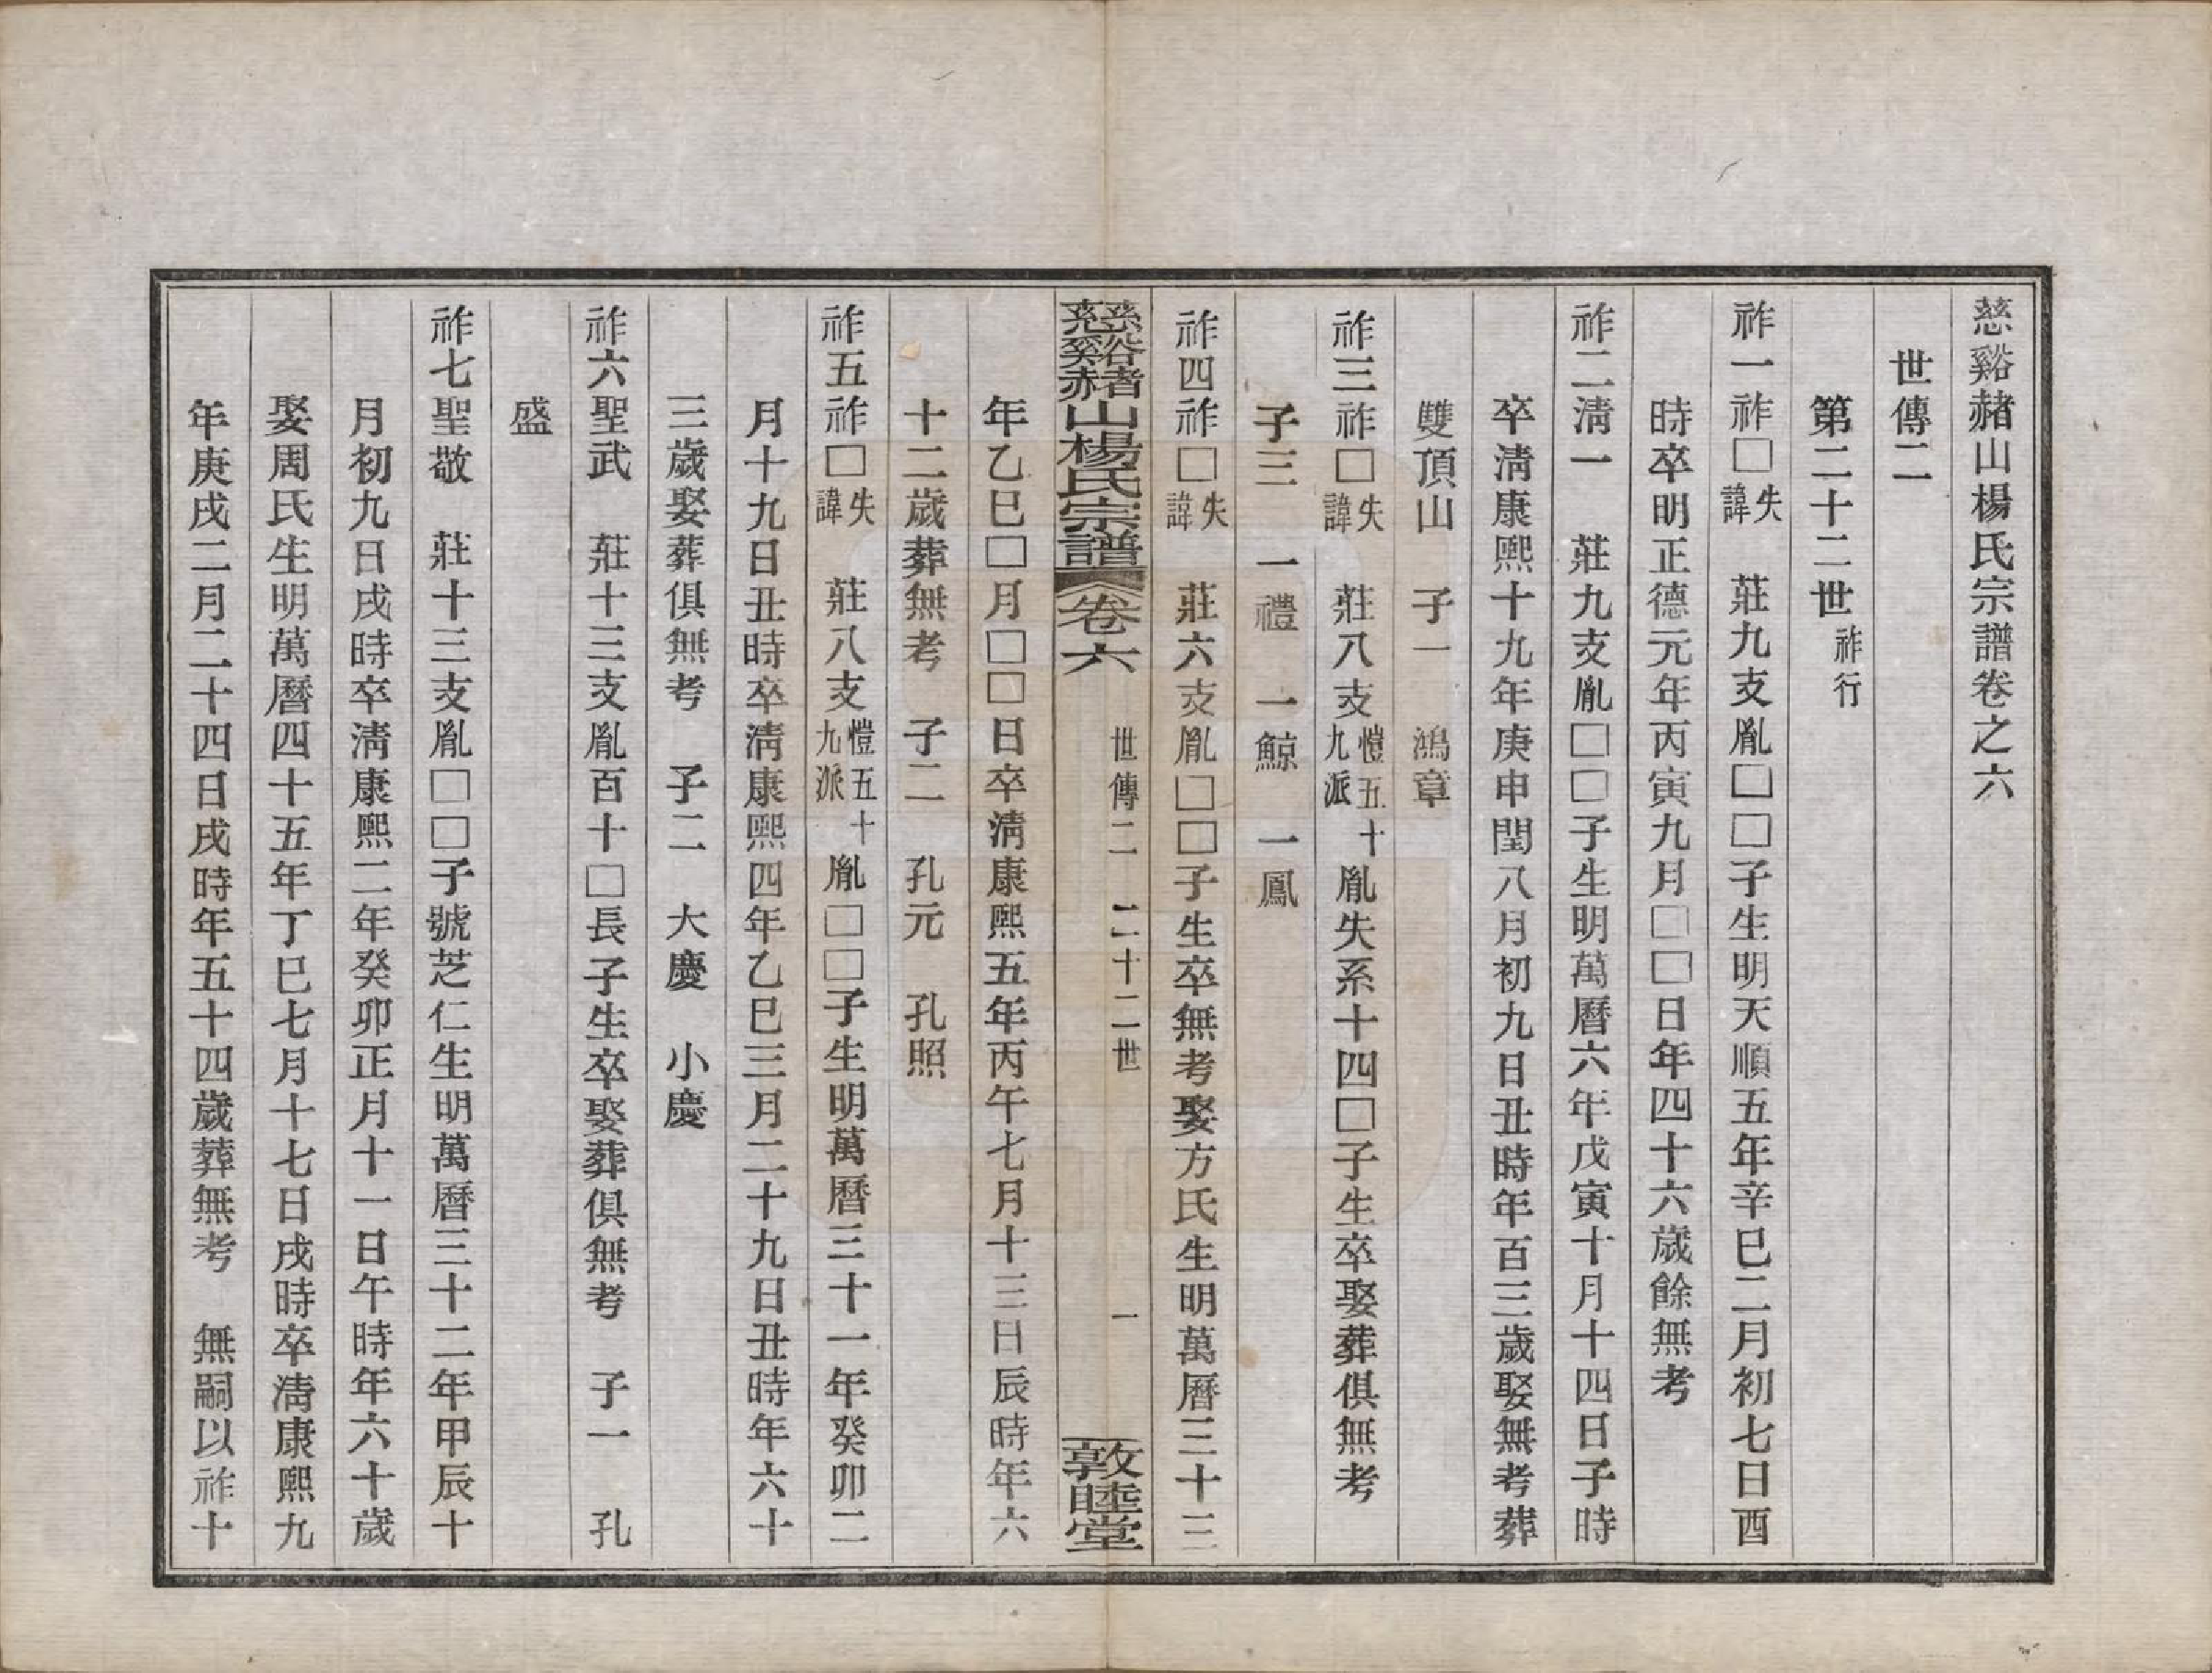 慈谿赭山楊氏宗譜卷之六
世傳二
第二十二世祚行
祚一祚□失諱　莊九支胤□□子生明天順五年辛巳二月初七日酉
時卒明正德元年丙寅九月□□日年四十六歲餘無考
祚二淸一　莊九支胤□□子生明萬曆六年戊寅十月十四日子時
卒淸康熙十九年庚申閏八月初九日丑時年百三歲娶無考葬
雙頂山　子一　鴻章
祚三祚□失諱　莊八支愷五十九派胤失系十四□子生卒娶葬俱無考
子三　一禮　一鯨　一鳳
祚四祚□失諱　莊六支胤□□子生卒無考娶方氏生明萬曆三十三
慈谿赭山楊氏宗譜　卷六　世傳二　二十二世　一　敦睦堂
年乙巳□月□□日卒淸康熙五年丙午七月十三日辰時年六
十二歲葬無考　子二　孔元　孔照
祚五祚□失諱　莊八支愷五十九派胤□□子生明萬曆三十一年癸卯二
月十九日丑時卒淸康熙四年乙巳三月二十九日丑時年六十
三歲娶葬俱無考　子二　大慶　小慶
祚六聖武　莊十三支胤百十□長子生卒娶葬俱無考　子一　孔
盛
祚七聖敬　莊十三支胤□□子號芝仁生明萬曆三十二年甲辰十
月初九日戌時卒淸康熙二年癸卯正月十一日午時年六十歲
娶周氏生明萬曆四十五年丁巳七月十七日戌時卒淸康熙九
年庚戌二月二十四日戌時年五十四歲葬無考　無嗣以祚十